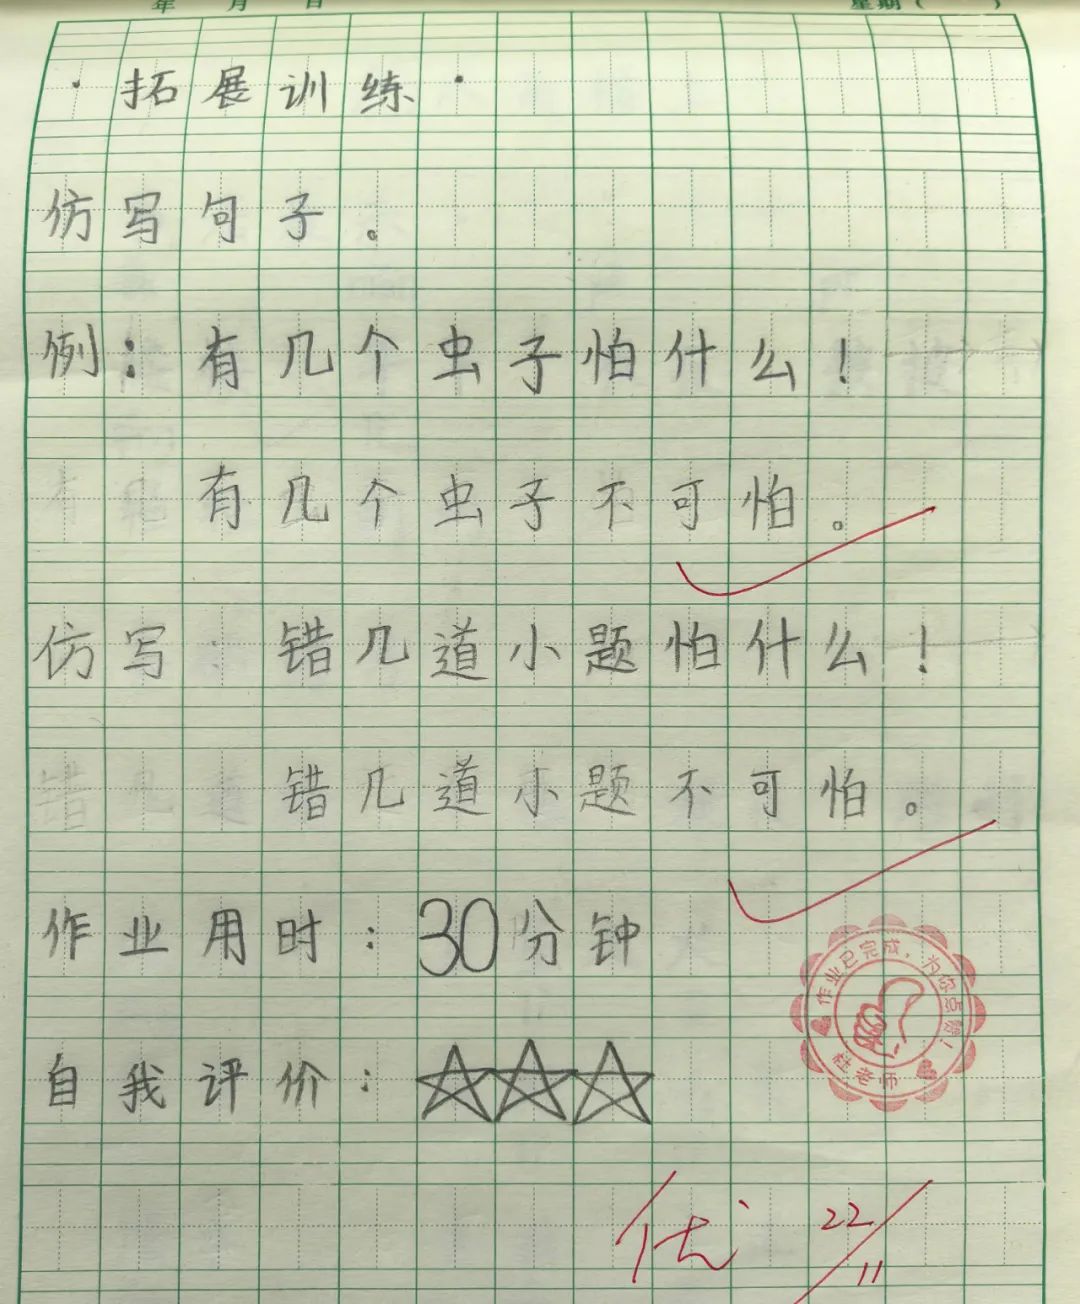 年 月 日 星期（ ）
·拓展训练·
仿写句子。
例：有几个虫子怕什么！
有几个虫子不可怕。
仿写：错几道小题怕什么！
错几道小题不可怕。
作业用时：30分钟
作业已完成，为你点赞！
杜老师
自我评价：☆☆☆
优 22/11